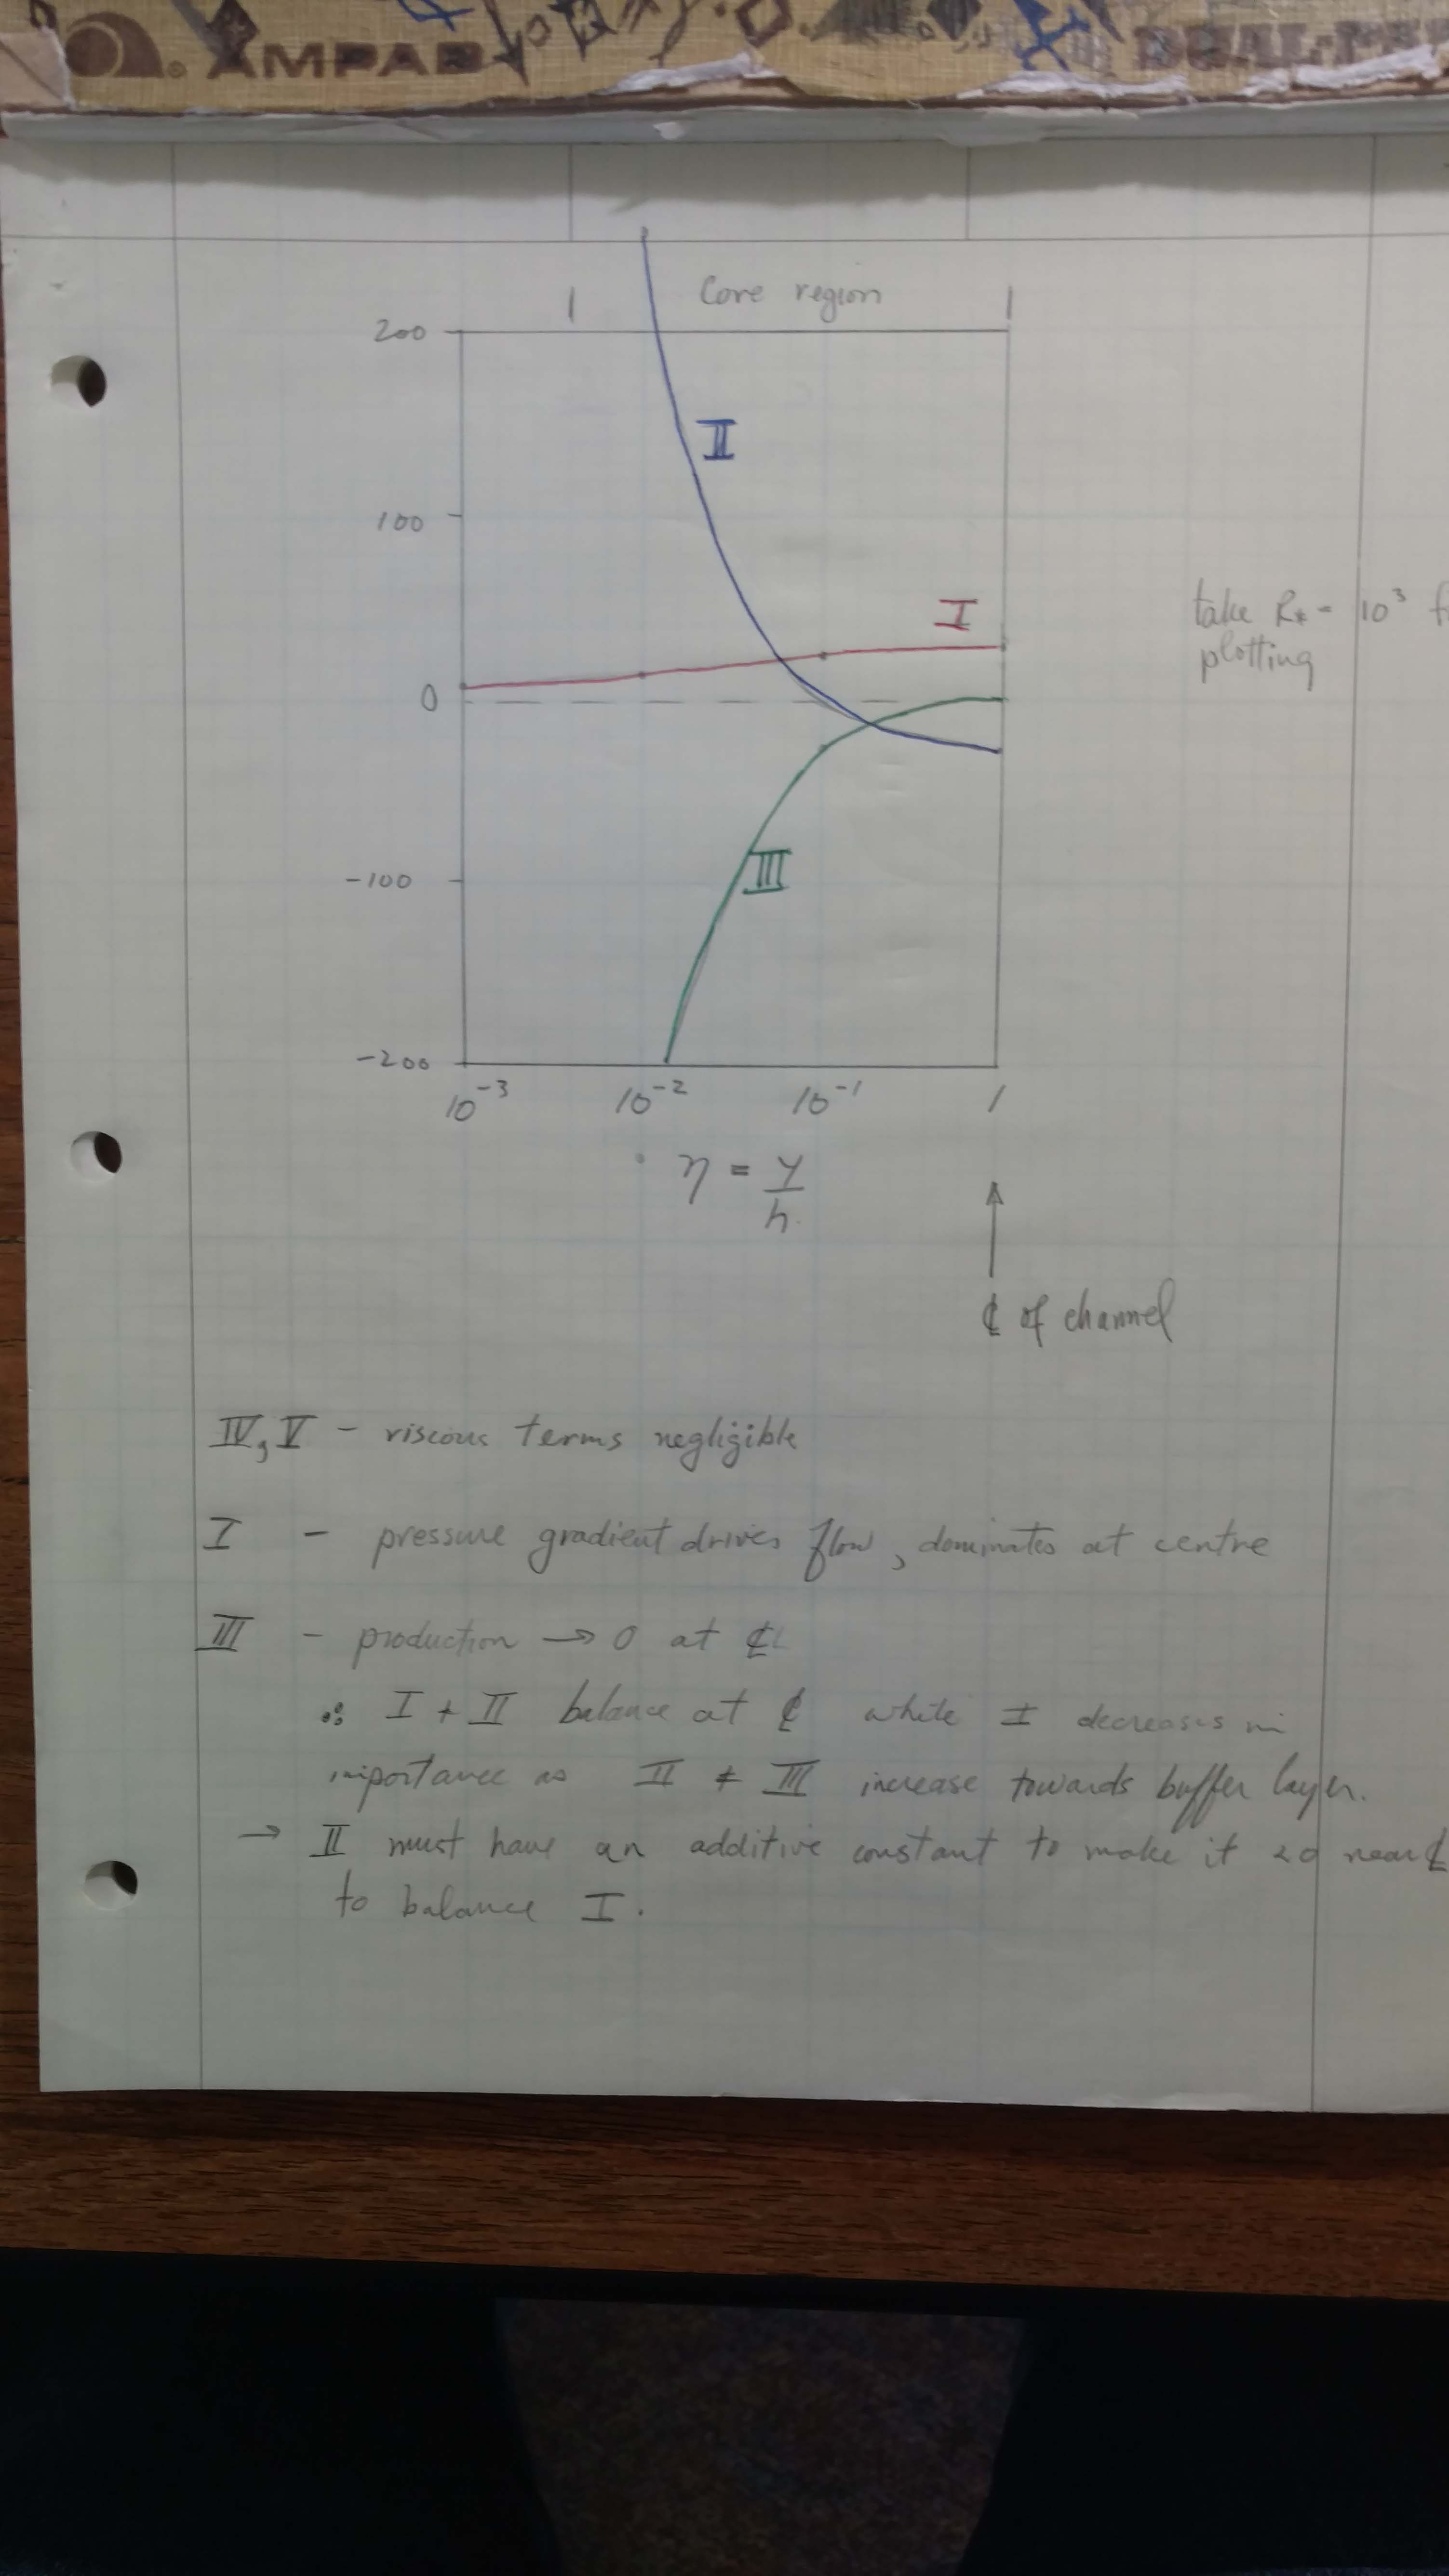 AMPAD
DUAL-P
Core region
200
II
100
I
take R* = 10³ f
plotting
0
III
-100
-200
10⁻³ 10⁻² 10⁻¹ 1
η = y/h
℄ of channel
IV, V - viscous terms negligible
I - pressure gradient drives flow, dominates at centre
III - production → 0 at ℄
∴ I + II balance at ℄ while I decreases in
importance as II + III increase towards buffer layer.
→ II must have an additive constant to make it <0 near ℄
to balance I.